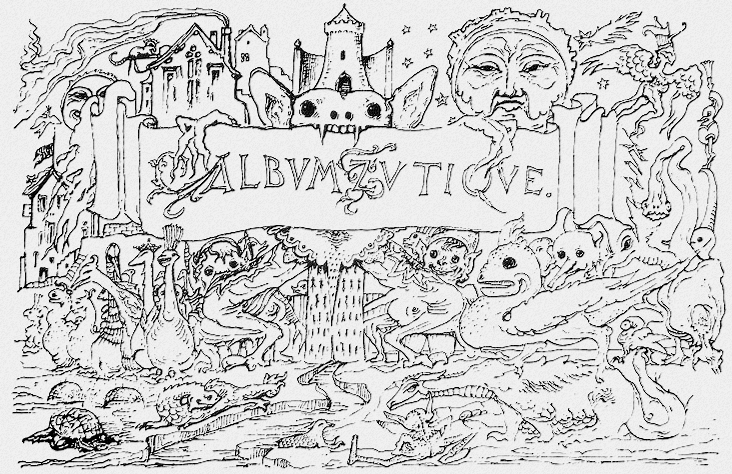 ALBVM ZVTIQVE.